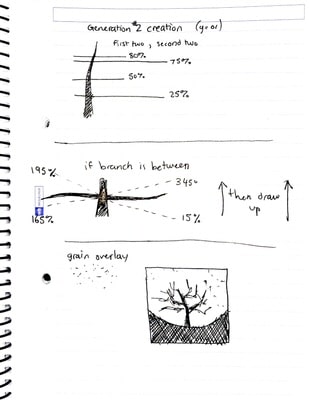 Generation #2 creation (y=0)
first two, second two
80%
75%
50%
25%
if branch is between
195%
345°
165%
15%
then draw
up
grain overlay